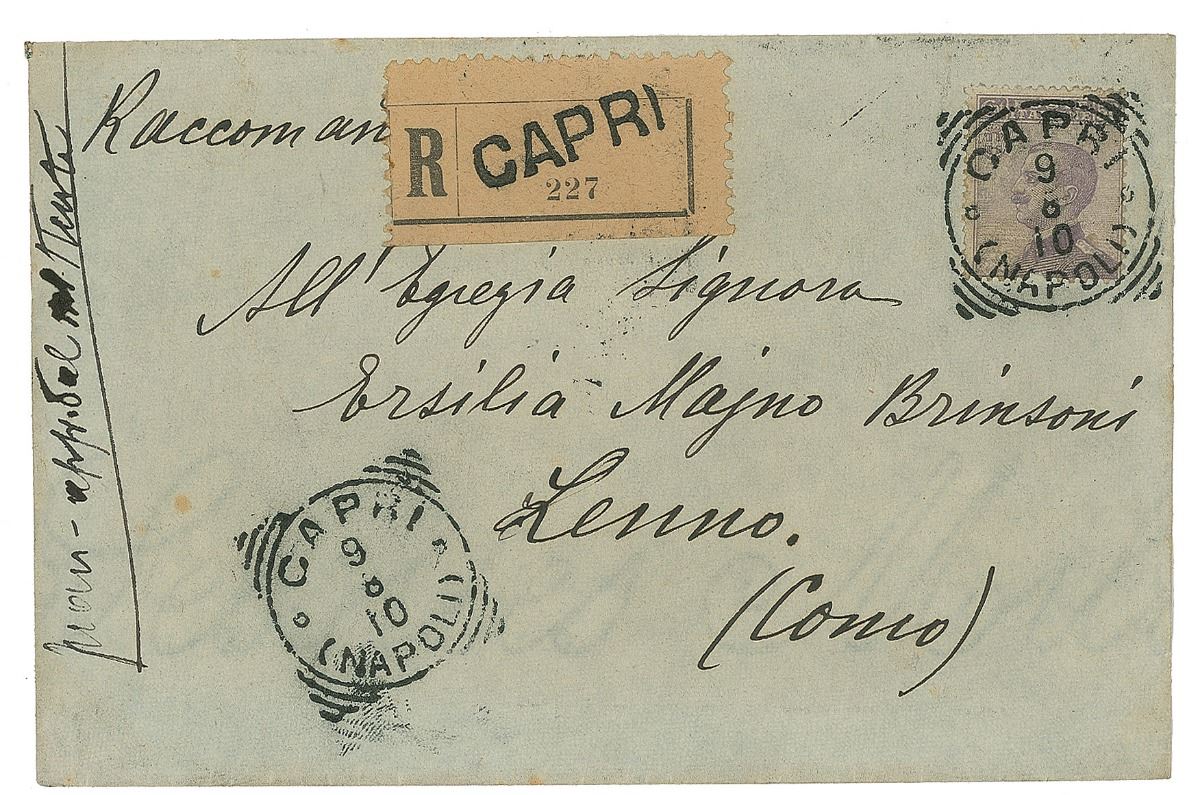 Raccoman
R CAPRI
227
CAPRI
9
8
10
(NAPOLI)
All' Egregia Signora
Ersilia Majno Brinsoni
Lenno.
(Como)
CAPRI
9
8
10
(NAPOLI)